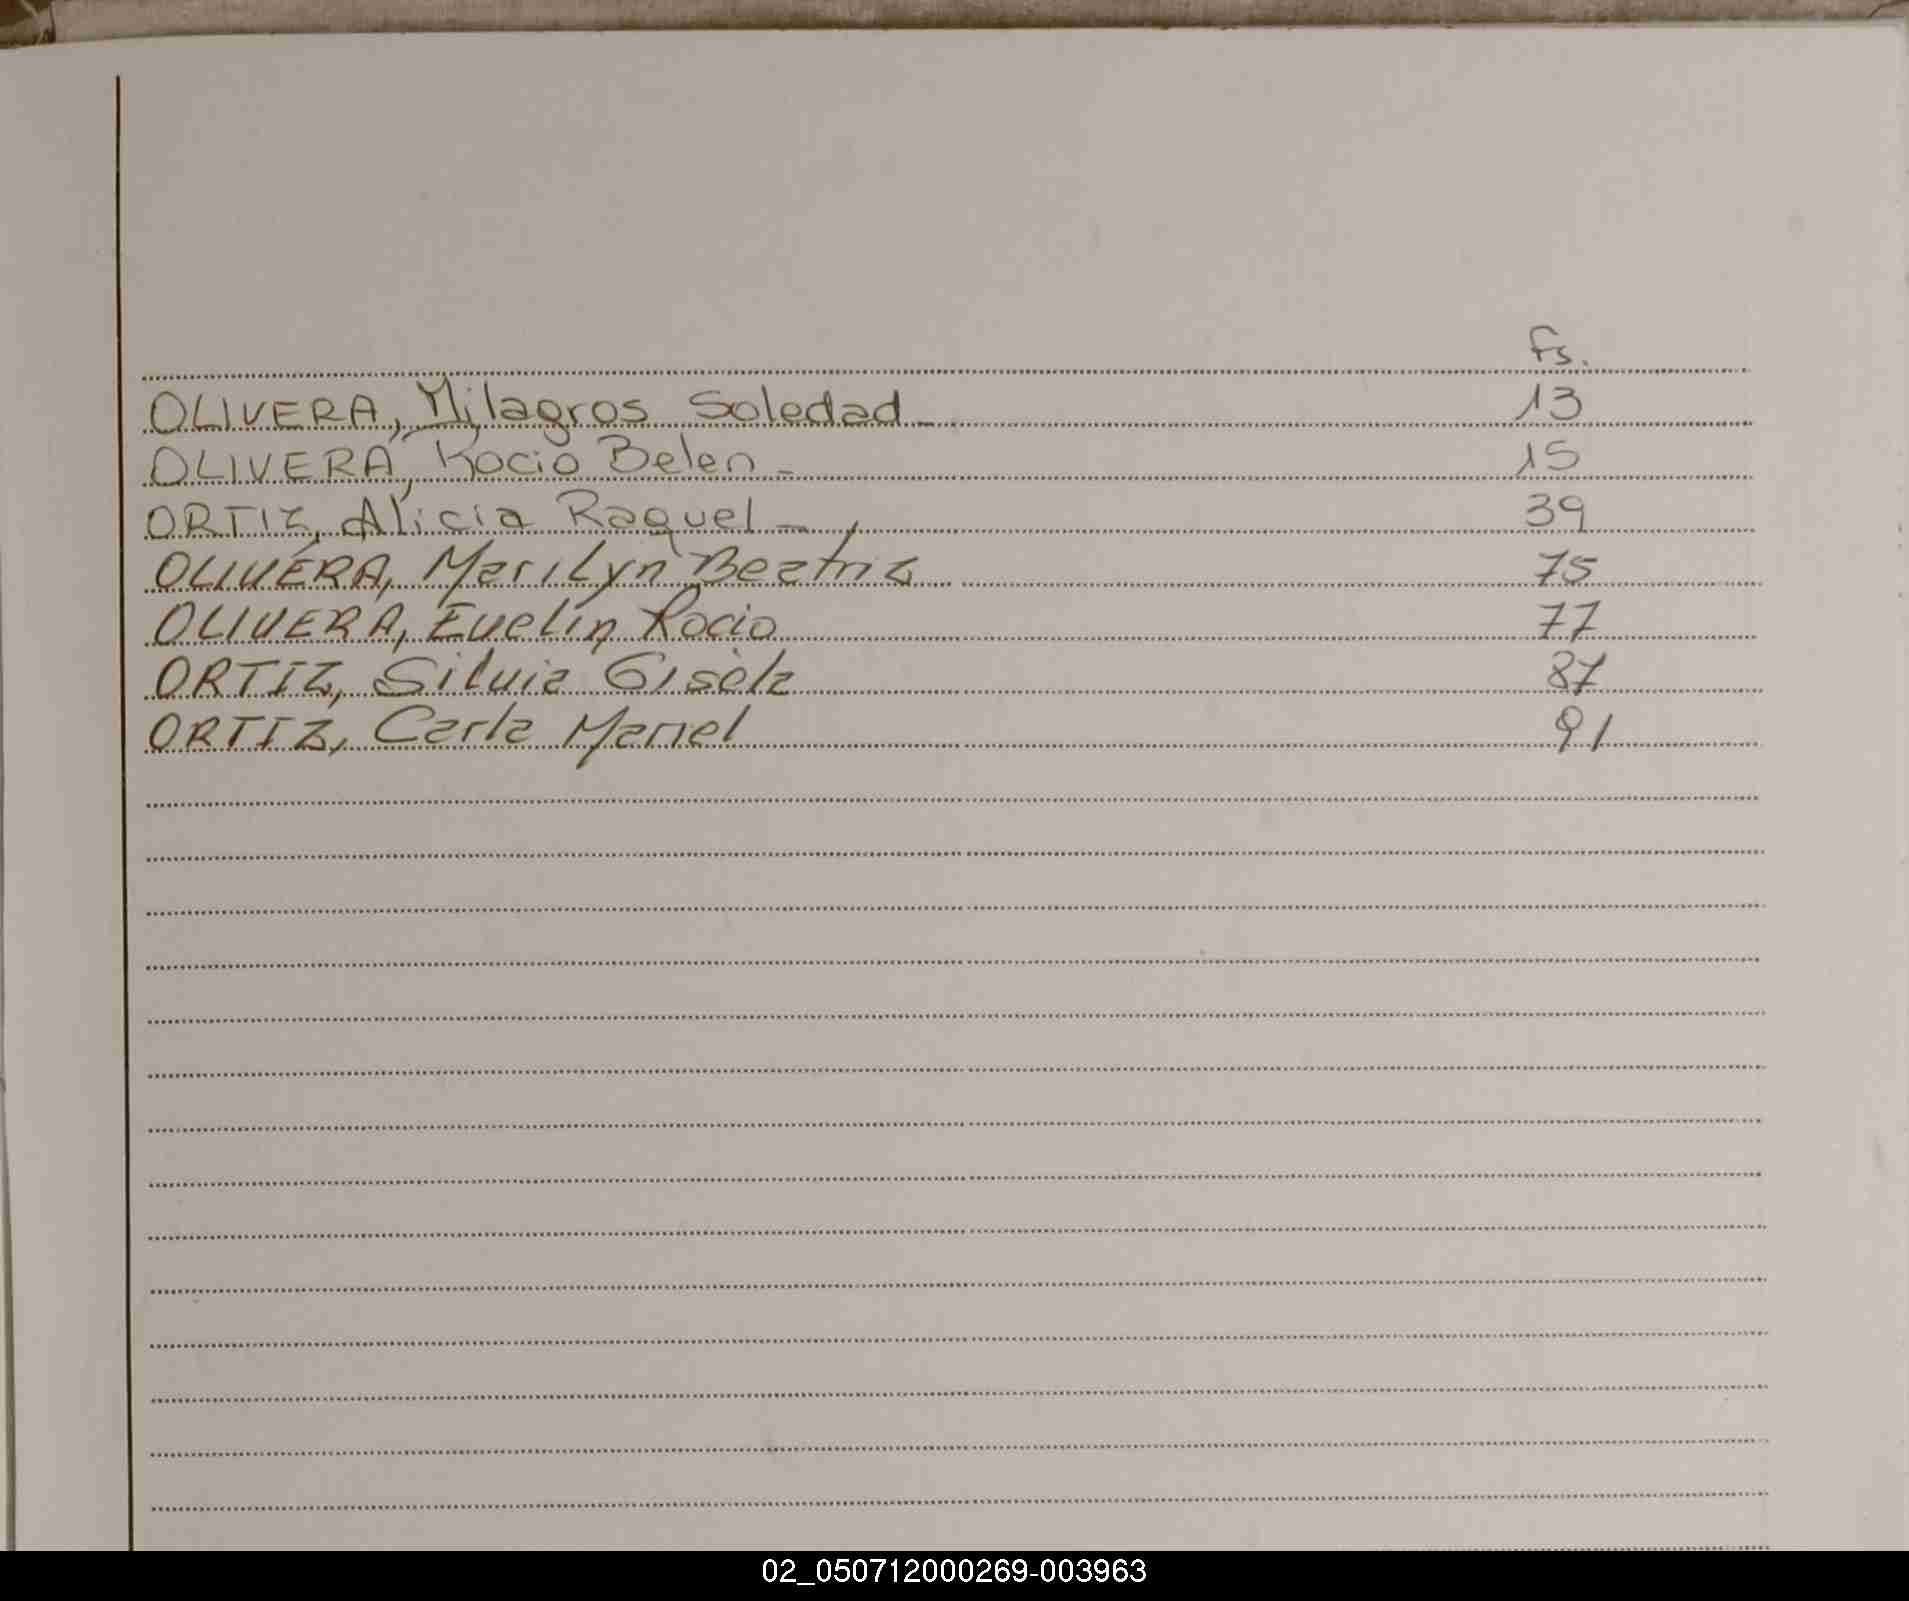 fs.
OLIVERA, Milagros Soledad_ 13
OLIVERA, Rocio Belen_ 15
ORTIZ, Alicia Raquel_ 39
OLIVERA, Marilyn Beatriz 75
OLIVERA, Evelin Rocio 77
ORTIZ, Silvia Gisela 87
ORTIZ, Carla Mariel 91
02_050712000269-003963